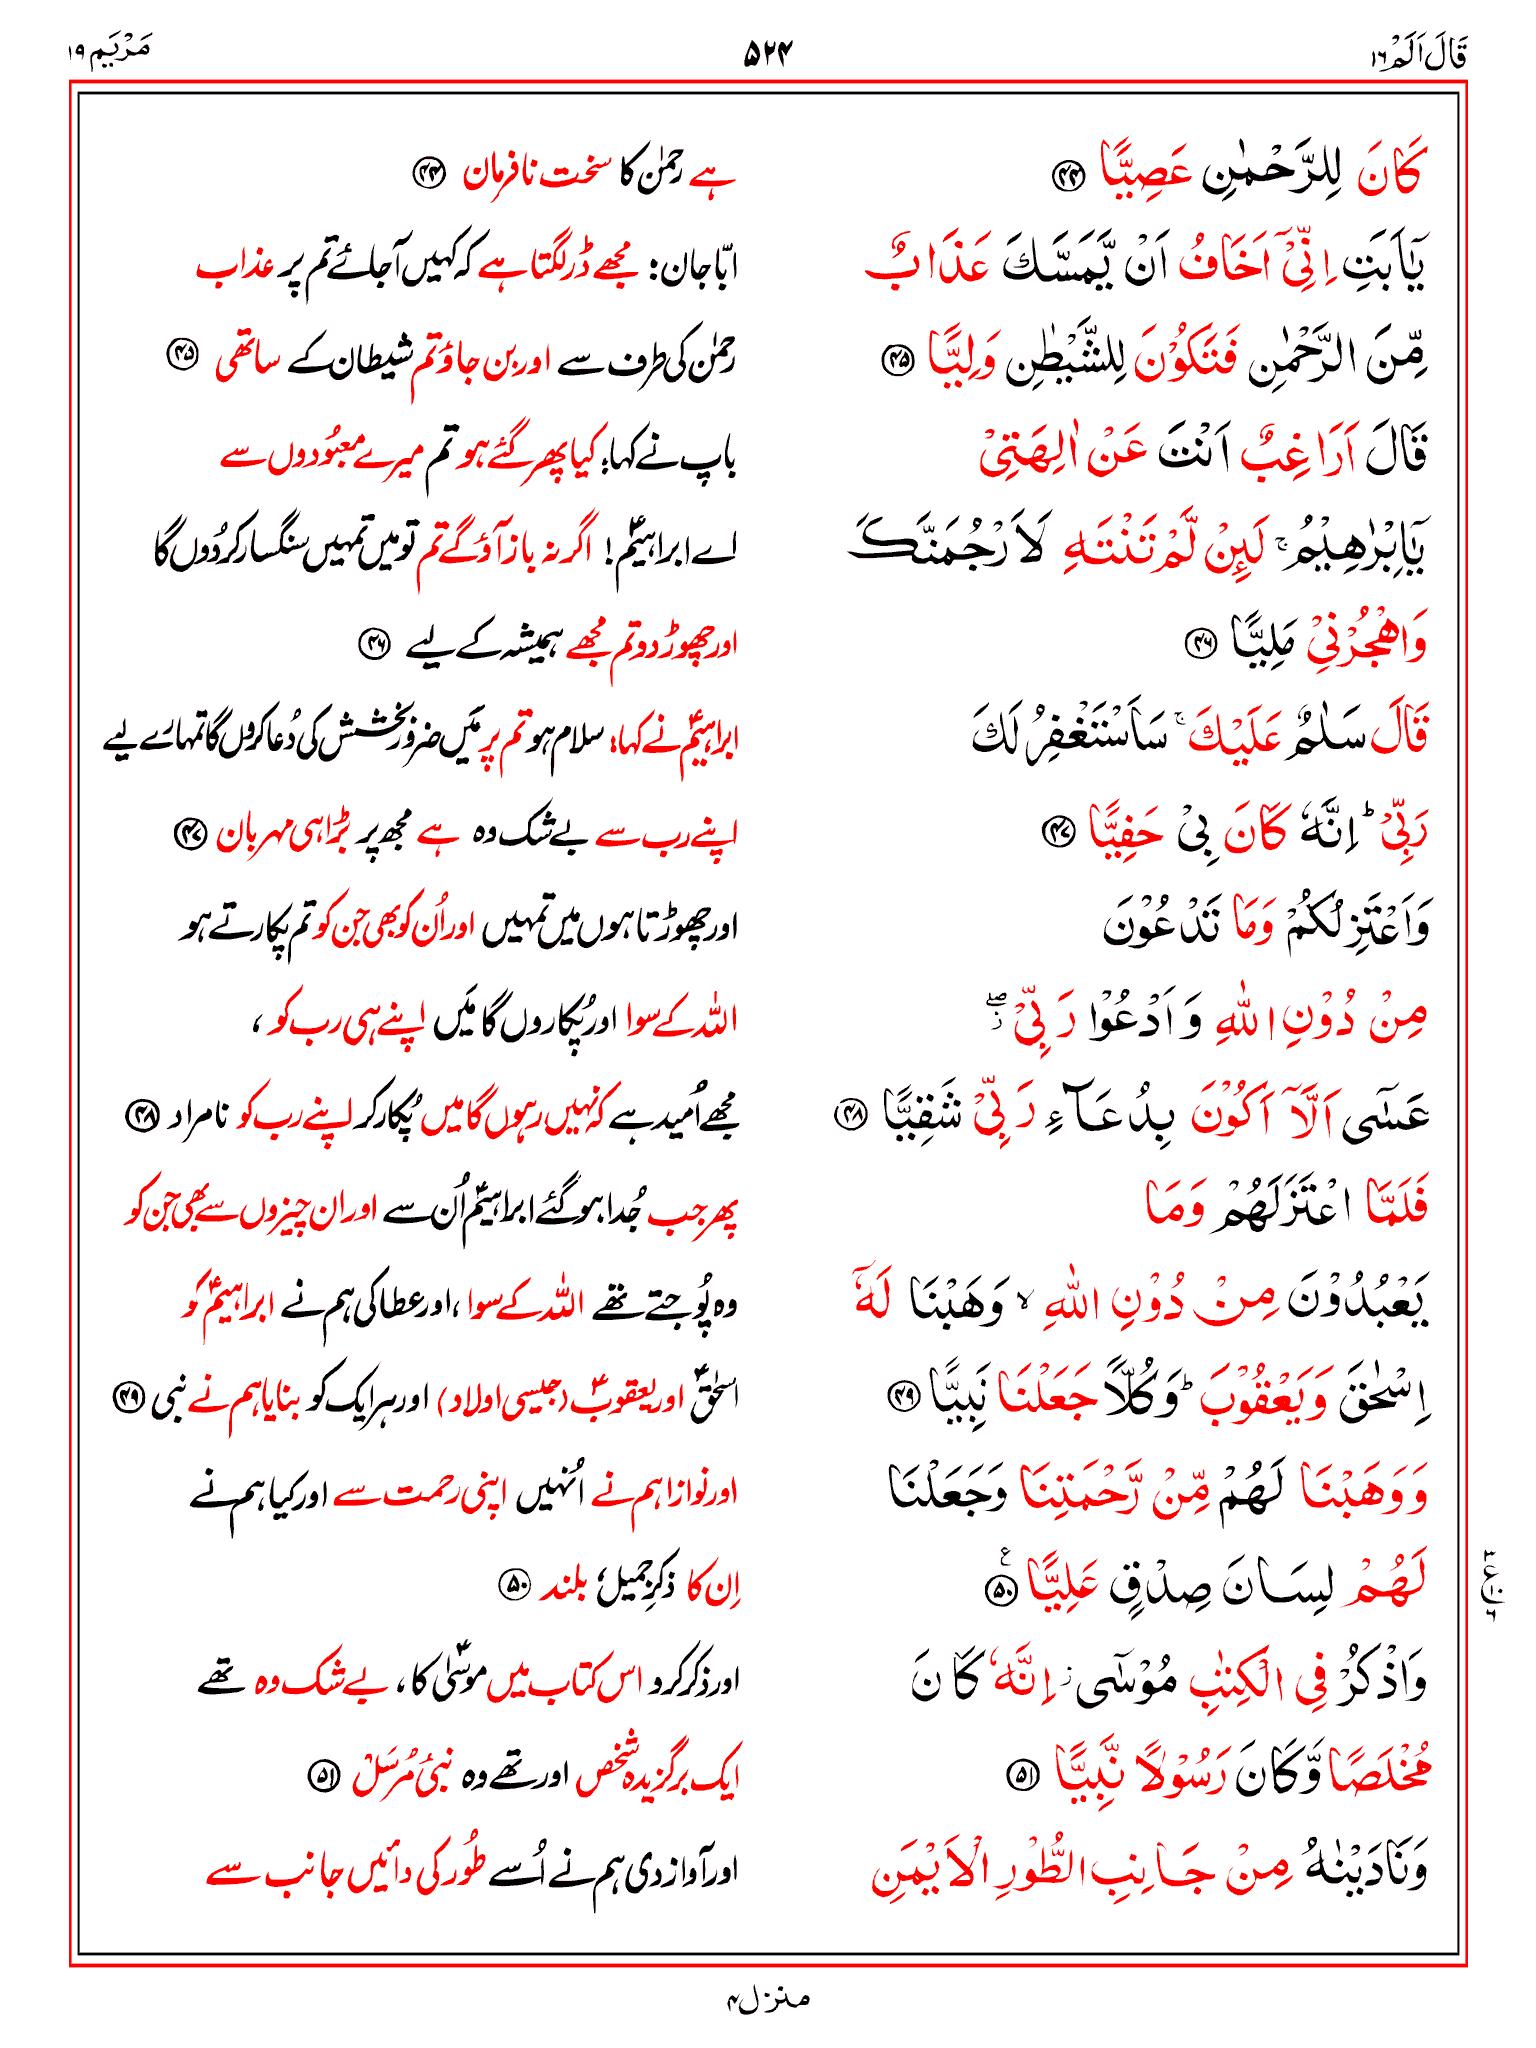 قَالَ اَلَمْ ١٦ ۵۲۴ مَرْيَم ١٩
كَانَ لِلرَّحْمٰنِ عَصِيًّا ﴿۴۴﴾ ہے رحمٰن کا سخت نافرمان ﴿۴۴﴾
يٰۤاَبَتِ اِنِّيْۤ اَخَافُ اَنْ يَّمَسَّكَ عَذَابٌ ابّا جان: مجھے ڈر لگتا ہے کہ کہیں آجائے تم پر عذاب
مِّنَ الرَّحْمٰنِ فَتَكُوْنَ لِلشَّيْطٰنِ وَلِيًّا ﴿۴۵﴾ رحمٰن کی طرف سے اور بن جاؤ تم شیطان کے ساتھی ﴿۴۵﴾
قَالَ اَرَاغِبٌ اَنْتَ عَنْ اٰلِهَتِيْ باپ نے کہا: کیا پھر گئے ہو تم میرے معبُودوں سے
يٰۤاِبْرٰهِيْمُ ۚ لَئِنْ لَّمْ تَنْتَهِ لَاَرْجُمَنَّكَ اے ابراہیمؑ! اگر نہ باز آؤ گے تم تو میں تمہیں سنگسار کر دُوں گا
وَاهْجُرْنِيْ مَلِيًّا ﴿۴۶﴾ اور چھوڑ دو تم مجھے ہمیشہ کے لیے ﴿۴۶﴾
قَالَ سَلٰمٌ عَلَيْكَ ۚ سَاَسْتَغْفِرُ لَكَ ابراہیمؑ نے کہا: سلام ہو تم پر مَیں ضرور بخشش کی دُعا کروں گا تمہارے لیے
رَبِّيْ ؕ اِنَّهٗ كَانَ بِيْ حَفِيًّا ﴿۴۷﴾ اپنے رب سے بے شک وہ ہے مجھ پر بڑا ہی مہربان ﴿۴۷﴾
وَاَعْتَزِلُكُمْ وَمَا تَدْعُوْنَ اور چھوڑتا ہوں میں تمہیں اور اُن کو بھی جن کو تم پکارتے ہو
مِنْ دُوْنِ اللّٰهِ وَاَدْعُوْا رَبِّيْ ۖ٘ اللہ کے سوا اور پُکاروں گا مَیں اپنے ہی رب کو ،
عَسٰۤى اَلَّاۤ اَكُوْنَ بِدُعَآءِ رَبِّيْ شَقِيًّا ﴿۴۸﴾ مجھے اُمید ہے کہ نہیں رہوں گا میں پُکار کر اپنے رب کو نامراد ﴿۴۸﴾
فَلَمَّا اعْتَزَلَهُمْ وَمَا پھر جب جُدا ہو گئے ابراہیمؑ اُن سے اور ان چیزوں سے بھی جن کو
يَعْبُدُوْنَ مِنْ دُوْنِ اللّٰهِ ۙ وَهَبْنَا لَهٗۤ وہ پُوجتے تھے اللہ کے سوا ،اور عطا کی ہم نے ابراہیمؑ کو
اِسْحٰقَ وَيَعْقُوْبَ ؕ وَكُلًّا جَعَلْنَا نَبِيًّا ﴿۴۹﴾ اسحٰقؑ اور یعقوبؑ (جیسی اولاد) اور ہر ایک کو بنایا ہم نے نبی ﴿۴۹﴾
وَوَهَبْنَا لَهُمْ مِّنْ رَّحْمَتِنَا وَجَعَلْنَا اور نوازا ہم نے اُنہیں اپنی رحمت سے اور کیا ہم نے
لَهُمْ لِسَانَ صِدْقٍ عَلِيًّا ﴿۵۰﴾ ع اِن کا ذکرِ جمیل بلند ﴿۵۰﴾
وَاذْكُرْ فِي الْكِتٰبِ مُوْسٰۤى ؗ اِنَّهٗ كَانَ اور ذکر کرو اس کتاب میں موسٰیؑ کا ، بے شک وہ تھے
مُخْلَصًا وَّكَانَ رَسُوْلًا نَّبِيًّا ﴿۵۱﴾ ایک برگزیدہ شخص اور تھے وہ نبیٔ مُرسَل ﴿۵۱﴾
وَنَادَيْنٰهُ مِنْ جَانِبِ الطُّوْرِ الْاَيْمَنِ اور آواز دی ہم نے اُسے طُور کی دائیں جانب سے
منزل ۴